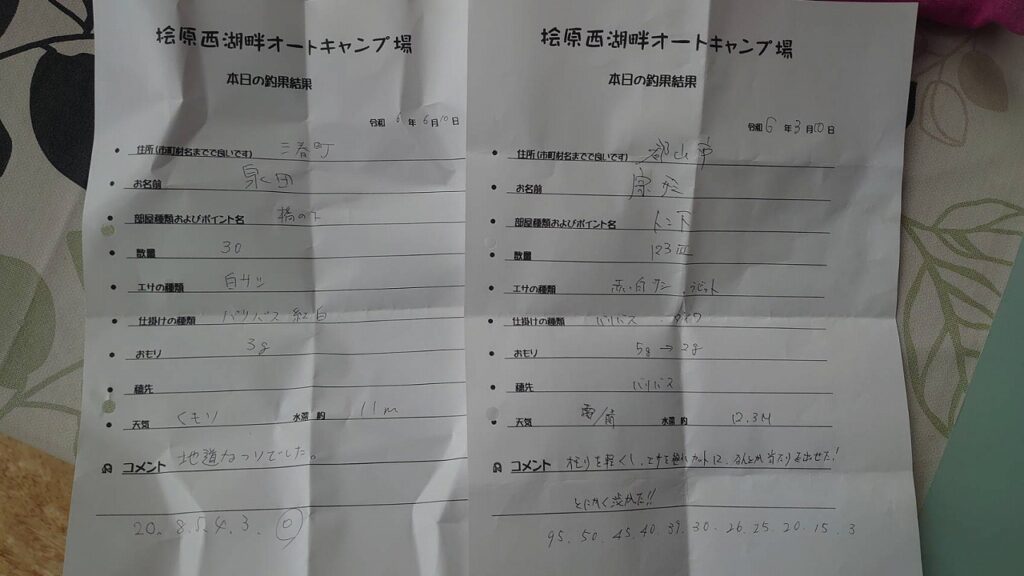 桧原西湖畔オートキャンプ場
本日の釣果結果
令和 6 年 6月10日
住所(市町村名までで良いです) 三春町
お名前
部屋種類およびポイント名 橋の下
数量 30
エサの種類 白サシ
仕掛けの種類 バリバス 紅白
おもり 3g
穂先
天気 くもり 水深 約 11m
コメント 地道なつりでした。
20. 8. 5. 4. 3. 0
桧原西湖畔オートキャンプ場
本日の釣果結果
令和 6 年 3月10日
住所(市町村名までで良いです) 郡山市
お名前
部屋種類およびポイント名
数量 123匹
エサの種類 赤・白サシ ラビット
仕掛けの種類 バリバス
おもり 5g→3g
穂先 バリバス
天気 雪/雨 水深 約 12.3M
コメント オモリを軽くし、エサを
とにかく渋かった!!
95. 50. 45. 40. 39. 30. 26. 25. 20. 15. 3